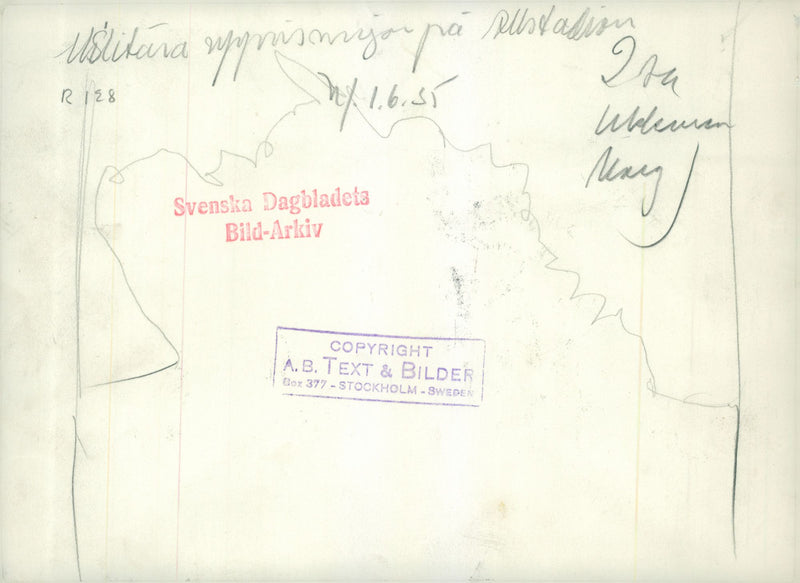 Militära uppvisningar på Stadion
2 sp
R 128
N/. 1.6.35
Svenska Dagbladets
Bild-Arkiv
COPYRIGHT
A.B. TEXT & BILDER
Box 377 - STOCKHOLM - SWEDEN